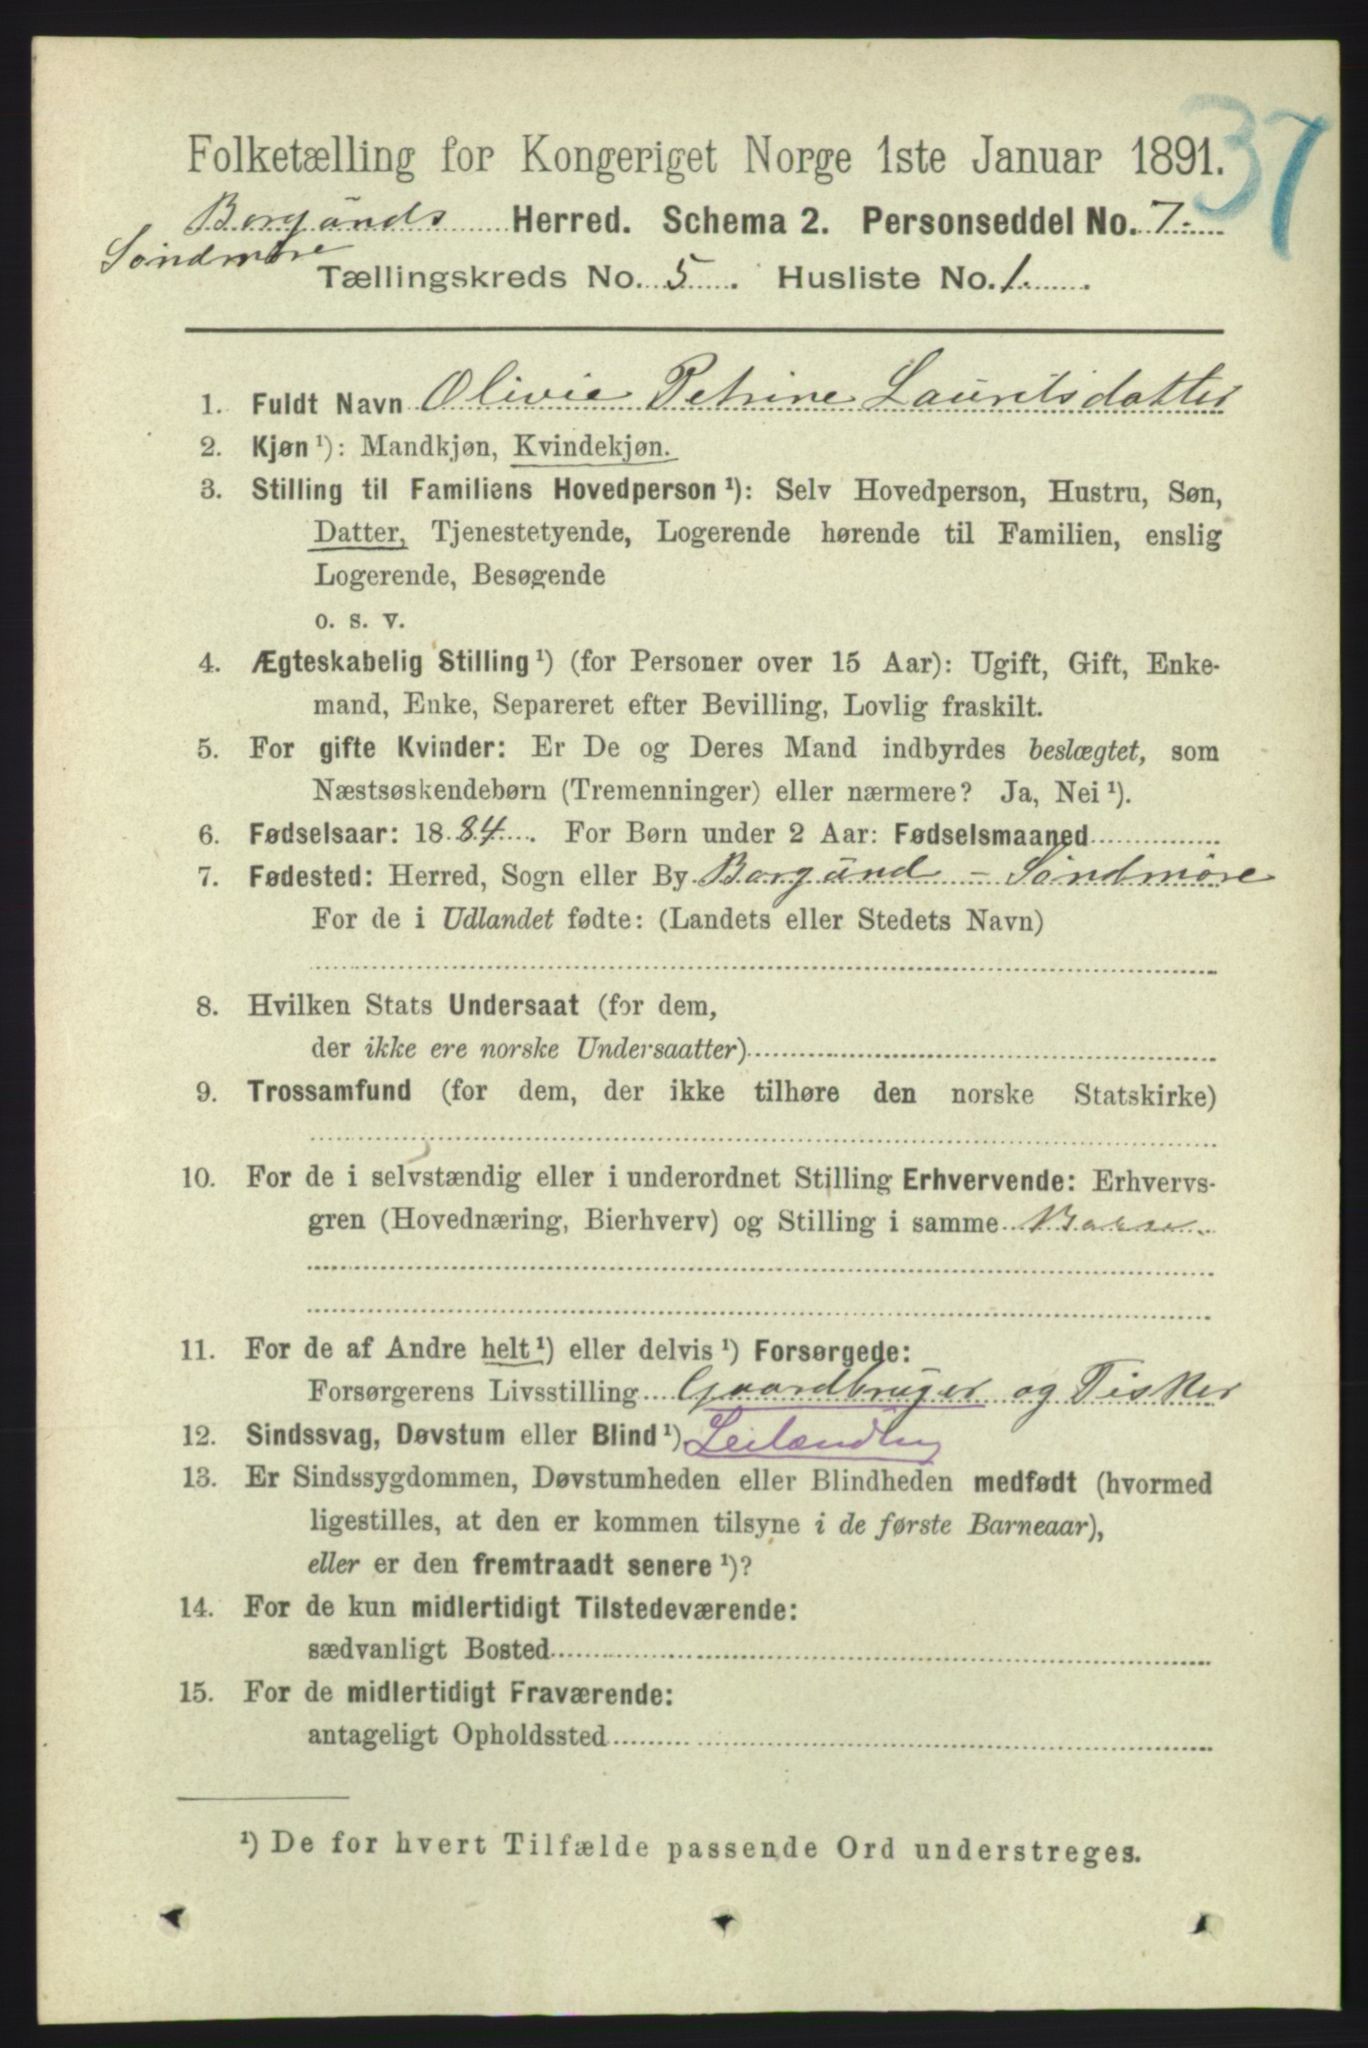 37
Folketælling for Kongeriget Norge 1ste Januar 1891.
Borgunds Herred. Schema 2. Personseddel No. 7.
Søndmøre
Tællingskreds No. 5. Husliste No. 1.
1. Fuldt Navn Olivie Petrine Lauritsdatter
2. Kjøn ¹): Mandkjøn, Kvindekjøn.
3. Stilling til Familiens Hovedperson ¹): Selv Hovedperson, Hustru, Søn,
Datter, Tjenestetyende, Logerende hørende til Familien, enslig
Logerende, Besøgende
o. s. v.
4. Ægteskabelig Stilling ¹) (for Personer over 15 Aar): Ugift, Gift, Enke-
mand, Enke, Separeret efter Bevilling, Lovlig fraskilt.
5. For gifte Kvinder: Er De og Deres Mand indbyrdes beslægtet, som
Næstsøskendebørn (Tremenninger) eller nærmere? Ja, Nei ¹).
6. Fødselsaar: 1884. For Børn under 2 Aar: Fødselsmaaned
7. Fødested: Herred, Sogn eller By Borgund - Søndmøre
For de i Udlandet fødte: (Landets eller Stedets Navn)
8. Hvilken Stats Undersaat (for dem,
der ikke ere norske Undersaatter)
9. Trossamfund (for dem, der ikke tilhøre den norske Statskirke)
10. For de i selvstændig eller i underordnet Stilling Erhvervende: Erhvervs-
gren (Hovednæring, Bierhverv) og Stilling i samme
11. For de af Andre helt ¹) eller delvis ¹) Forsørgede:
Forsørgerens Livsstilling Gaardbruger og Fisker
12. Sindssvag, Døvstum eller Blind ¹) Leilænding
13. Er Sindssygdommen, Døvstumheden eller Blindheden medfødt (hvormed
ligestilles, at den er kommen tilsyne i de første Barneaar),
eller er den fremtraadt senere ¹)?
14. For de kun midlertidigt Tilstedeværende:
sædvanligt Bosted
15. For de midlertidigt Fraværende:
antageligt Opholdssted
¹) De for hvert Tilfælde passende Ord understreges.